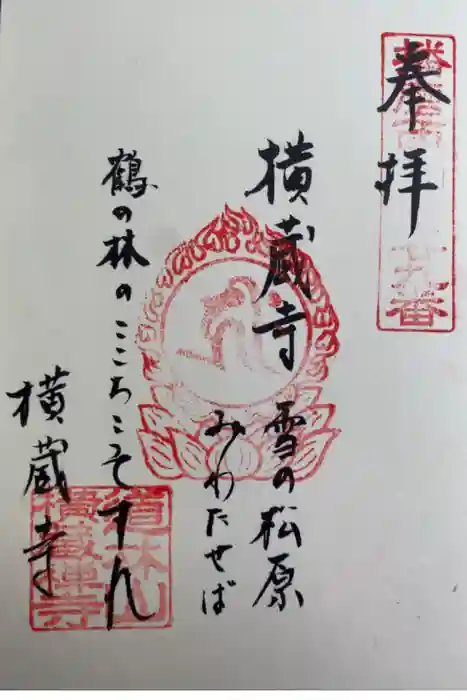 奉拝
横蔵寺 雪の松原
みわたせば
鶴の林のここちこそすれ
横蔵寺
道林山
横蔵禅寺